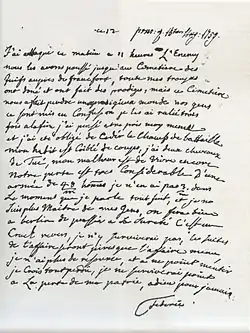 ce 12
J'ai attaqué ce matin a 11 heures l'Enemy
nous les avons poussé jusqu'au Cemetiere des
Juifs auprès de francfort, toute mes troupes
ont doné et ont fait des prodiges mais ce Cemetiere
nous a fait perdre un prodigieux monde nos gens
se sont mis en Confusion je les ai raliés trois
fois a la fin j'ai pensé etre pris moy meme
et j'ai été obligé de Ceder le Champ de bataille.
mon habit est Criblé de coups, j'ai deux chevaux
de Tué, mon malheur est de Vivre encore
Notre perte est tres Considerable d'une
armée de 48 homes je n'en ai pas 3 dans
Le moment que je parle tout fuit, et je ne
Suis plus Maitre de mes Gens, on fera bien
a berlin de penser a sa Sureté C'est un
Cruel revers, je n'y survivrai pas, les suites
de l'affaire seront pires que l'affaire meme,
je n'ai plus de resource, et a ne point mentir
je Crois tout perdu, je ne survivrai point
a La perte de ma patrie, adieu pour jamais.
Federic